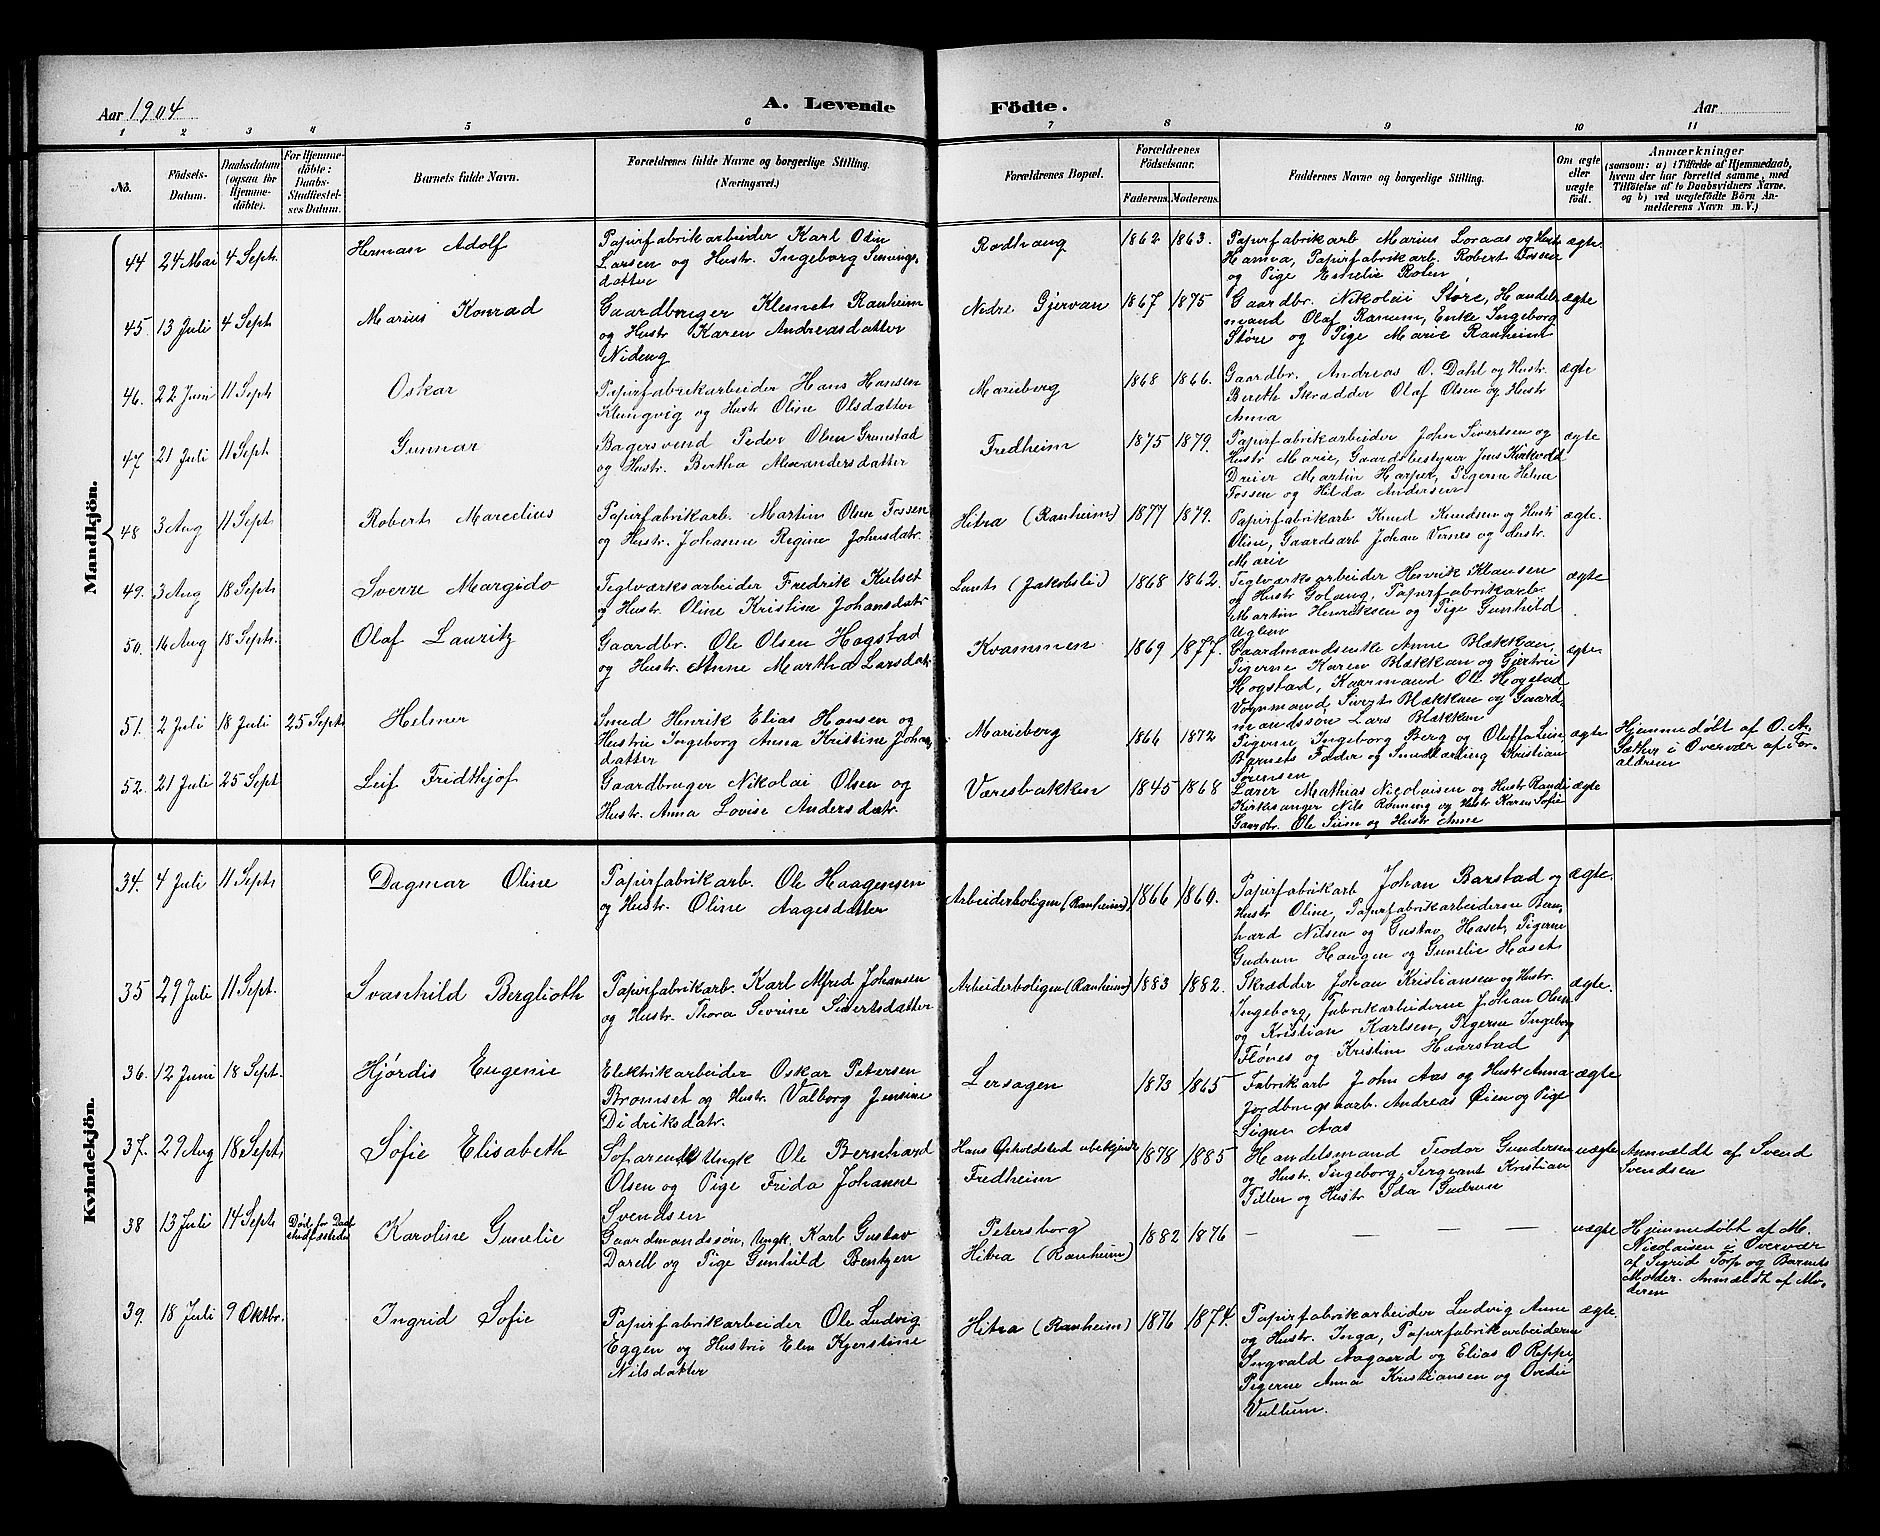 Aar 1904
A. Levende Födte.
Aar
1 2 3 4 5 6 7 8 9 10 11
No.
Födsels-
Datum.
Daabsdatum
(ogsaa for
Hjemme-
döbte).
For Hjemme-
döbte:
Daabs-
Stadfæstel-
ses Datum.
Barnets fulde Navn.
Forældrenes fulde Navne og borgerlige Stilling.
(Næringsvei.)
Forældrenes Bopæl.
Forældrenes
Födselsaar.
Faderens. Moderens.
Faddernes Navne og borgerlige Stilling.
Om ægte
eller
uægte
födt.
Anmærkninger
(saasom: a) i Tilfælde af Hjemmedaab,
hvem der har forrettet samme, med
Tilföielse af to Daabsvidners Navne.
og b) ved uægtefödte Börn An-
melderens Navn m. V.)
Mandkjön.
44 24 Mai 4 Sept. Herman Adolf
Papirfabrikarbeider Karl Odin
Larsen og Hustr. Ingeborg
datter
Rødhaug 1862 1863.
Papirfabrikarb Marius Loraas og Hustr
Hanna, Papirfabrikarb. Robert Fossen
og Pige Emelie Rolen
ægte.
45. 13 Juli 4 Sept Marius Konrad
Gaardbruger Klemet Ranheim
og Hustr Karen Andreasdatter
Nideng
Nedre Gjervan 1867 1875
Gaardbr. Nikolai Støre, Handels
mand Olaf Ranum, Enke Ingeborg
Støre og Pige Marie Ranheim
ægte
46. 22 Juni 11 Sept Oskar
Papirfabrikarbeider Hans Hansen
Klungvig og Hustr Oline Olsdatter
Marieberg 1868 1866.
Gaardbr. Andreas O. Dahl og Hustr.
Bereth Skrædder Olaf Olsen og Hustr
Anna
ægte
47 21 Juli 11 Sept Gunnar
Bagersvend Peder Olsen Grønstad
og Hustr. Bertha Alexandersdatter
Fredheim 1875 1879.
Papirfabrikarbeider John Sivertsen og
Hustr Marie, Gaardsbestyrer Jens Kirkvold
Dreier Martin Harper, Pigerne Helene
Fossen og Hilda Andersen
ægte
48 3 Aug 11 Sept Robert Marcelius
Papirfabrikarb. Martin Olsen Fossen
og Hustr. Johanne Regine Johnsdatr.
Hitra (Ranheim) 1877 1879.
Papirfabrikarb Knud Knudsen og Hustr
Oline, Gaardsarb Johan Vernes og Hustr.
Marie
ægte.
49. 3 Aug 18 Sept Sverre Margido
Teglværksarbeider Fredrik Kulset
og Hustr. Oline Kristine Johansdatr
(Jakobsli) 1868 1862.
Teglværksarbeider Henrik Klausen
og Hustr Golaug, Papirfabrikarb.
Martin Henriksen og Pige Gunhild
Uglen
ægte
50. 16 Aug 18 Sept. Olaf Lauritz
Gaardbr. Ole Olsen Hogstad
og Hustr. Anne Martha Larsdatr
Kvammen 1869 1877.
Gaardmandsenke Anne Blækkan,
Pigerne Karen Blækkan og Gjertru
Hogstad, Kaarmand Ole Hogstad
Vognmand Blækkan og Gaard
mandssøn Lars Blækkan
ægte
51. 2 Juli 18 Juli 25 Sept. Helmer
Smed Henrik Elias Hansen og
Hustru Ingeborg Anna Kristine Johan
datter
Marieberg 1866 1872
Pigerne Ingeborg Berg og Oleffa Lein
Barnets Fader og Smedlærling Kristian
Sørensen
ægte
Hjemmedøbt af O. A.
Sæther i Overvær af For-
ældrene
52. 21 Juli 25 Sept Leif Fridthjof
Gaardbruger Nikolai Olsen og
Hustr. Anna Lovise Andersdatr.
Væresbakken 1845 1868
Lærer Mathias Nicolaisen og Hustr Randi
Kirksanger Nils Rønning og Hustr Karen Sofie
Gaardbr. Ole Siem og Hustr Anne
ægte
Kvindekjön.
34. 4 Juli 11 Sept. Dagmar Oline
Papirfabrikarb. Ole Haagensen
og Hustr. Oline Aagesdatter
Arbeiderboligen (Ranheim) 1866 1869.
Papirfabrikarb Johan Barstad og
Hustr Oline, Papirfabrikarbeiderne Bern
hard Nilsen og Gustav Haset, Pigerne
Gudrun Haugen og Gunelie Haset
ægte.
35 29 Juli 11 Sept. Svanhild Berglioth
Papirfabrikarb. Karl Alfred Johansen
og Hustr. Thora Sivrine Sivertsdatter
Arbeiderboligen (Ranheim) 1883 1882.
Skrædder Johan Kristiansen og Hustr.
Ingeborg, Fabrikarbeiderne Johan Olsen
og Kristian Karlsen, Pigerne Ingeborg
Fløves og Kristine Haarstad
ægte.
36. 12 Juni 18 Sept. Hjördis Eugenie
Elektrikarbeider Oskar Petersen
Bromset og Hustr. Valborg Jensine
Didriksdatr.
Lersagen 1873 1865
Fabrikarb John Aas og Hustr Anna
Jordbrugsarb. Andreas Øien og Pige
Signe Aas
ægte
37. 29 Aug 18 Sept. Sofie Elisabeth
Ungk Ole Bernhard
Olsen og Pige Frida Johanne
Svendsen
Hans Opholdsted ubekjendt
Fredheim
1878 1885
Handelsmand Teodor Gundersen
og Hustr. Ingeborg, Sergeant Kristian
Tiller og Hustr Ida Gudrun
uægte
Anmældt af Svend
Svendsen
38 13 Juli 14 Sept Karoline Gunelie
Gaardmandssøn, Ungk. Karl Gustav
Darell og Pige Gunhild Bentzen
Petersborg
Hitra (Ranheim)
1882 1876
— — — —
uægte
Hjemmedøbt af M.
Nicolaisen i Overvær
af Sigrid Torp og Barnets
Moder. Anmældt af Mo-
deren
39. 18 Juli 9 Oktbr. Ingrid Sofie
Papirfabrikarbeider Ole Ludvig
Eggen og Hustru Elen Kjerstine
Nilsdatter
Hitra (Ranheim) 1876 1874.
Papirfabrikarbeider Ludvig Anne
og Hustr. Inga, Papirfabrikarbeiderne
Ingvald Aagaard og Elias O Rappe,
Pigerne Anna Kristiansen og Ovedie
Vullum.
ægte.